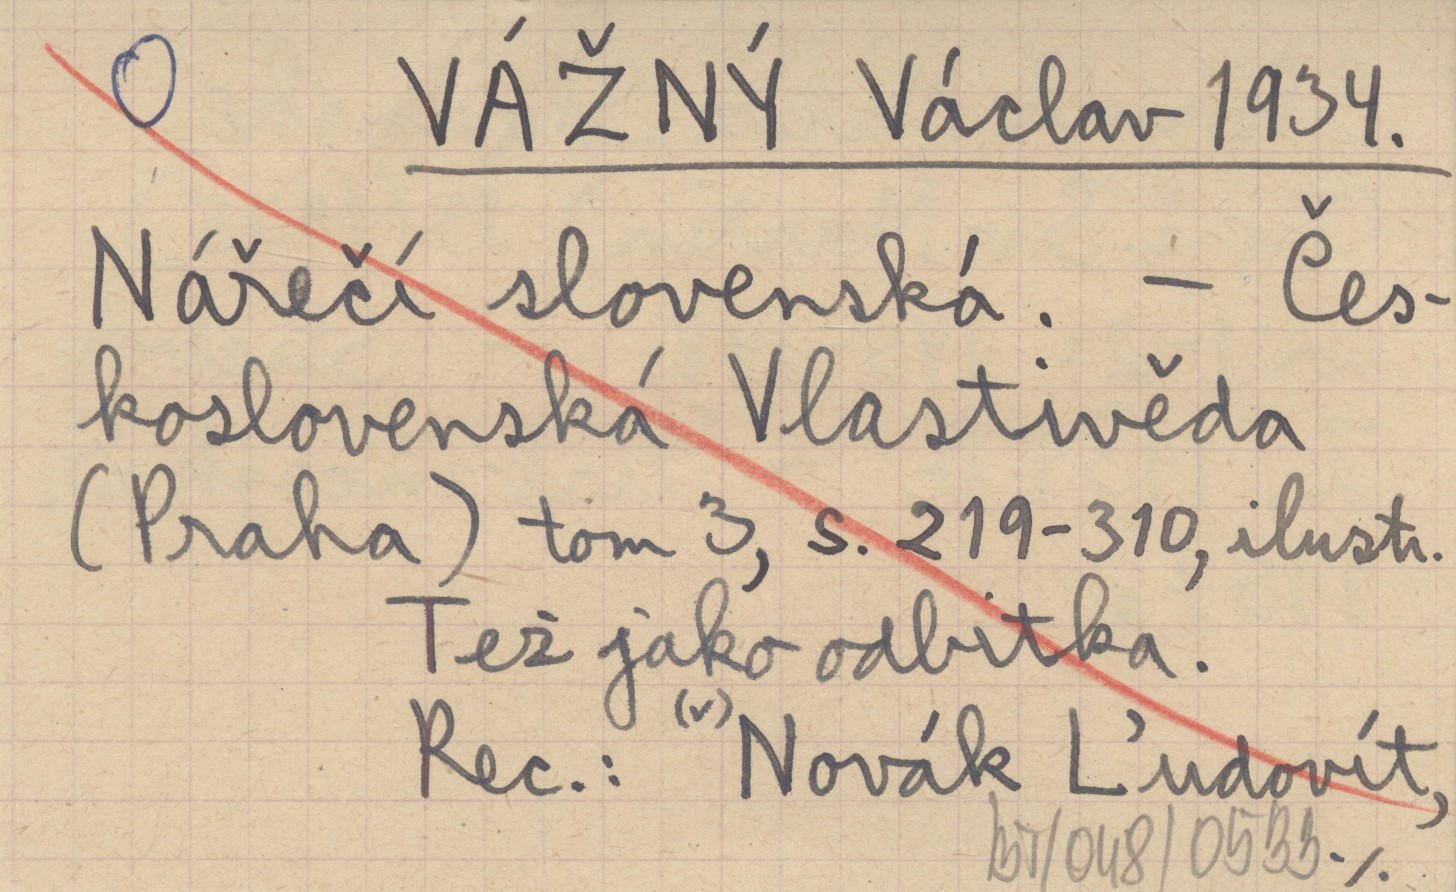 VÁŽNÝ Václav 1934.
Nářečí slovenská. – Čes-
koslovenská Vlastivěda
(Praha) tom 3, s. 219-310, ilustr.
Też jako odbitka.
(v)
Rec.: Novák Ľudovít,
/048/0533 ./.